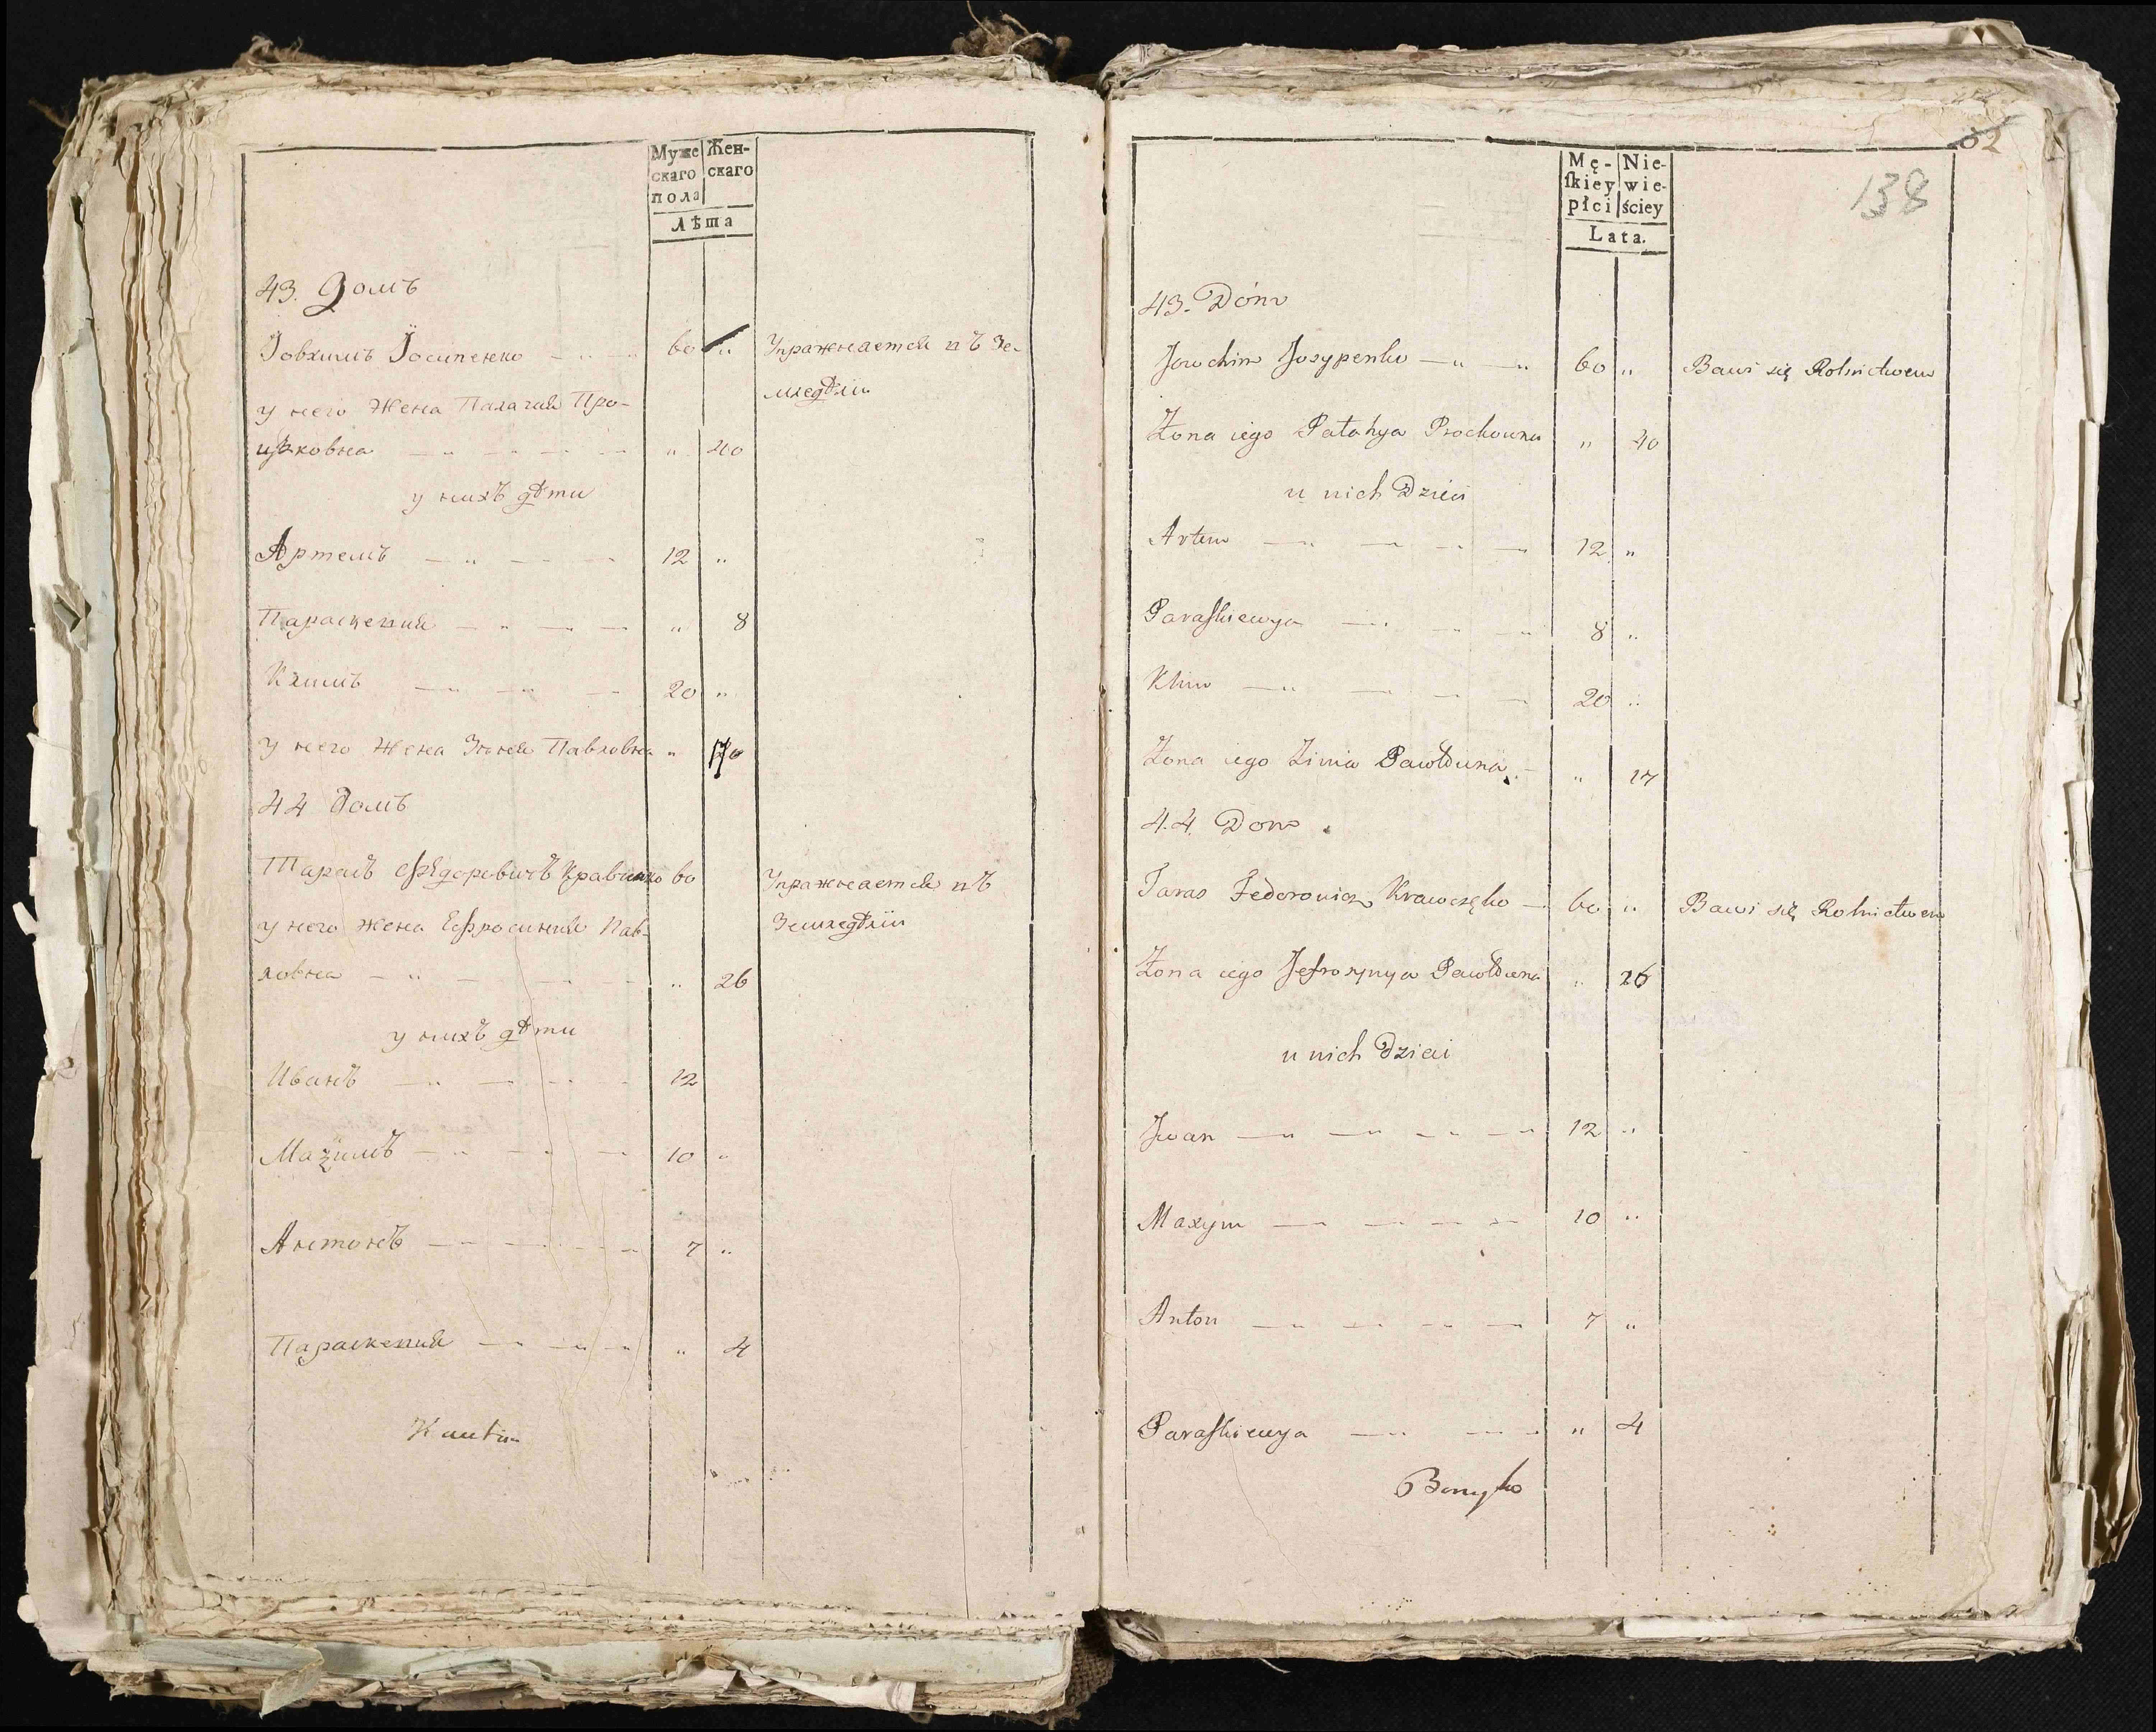 Муже
скаго
пола
Жен-
скаго
Лѣта
43. Домъ
Іовхимъ Іосипенко — „ — 60 „ Упражняется въ Зе-
мледѣліи
у него Жена Палагия Про-
цковна — „ — — — „ 40
у нихъ дѣти
Артемъ — „ — — 12 „
Параскевия — „ — — „ 8
Климъ — „ — „ — 20 „
у него Жена Зѣновия Павловна „
44 Домъ
Тарасъ Ѳедоровичъ Кравченко 60 Упражняется въ
Земледѣліи
у него жена Ефросиния Пав-
ловна — „ — — — „ 26
у нихъ дѣти
Иванъ — „ — — 12
Маѯимъ — „ — — 10 „
Антонъ — „ — — 7 „
Параскевия — „ — „ — „ 4
62
138
Mę-
ſkiey
płci
Nie-
wie-
ściey
Lata.
43. Dóm
Jowchim Josypenko — „ — „ 60 „ Bawi się Rolnictwem
Żona iego Pałahya Prockowna „ 40
u nich Dzieci
Artem — „ — „ — „ — 12 „
Paraſkiewya — „ — — „ 8 „
Klim — „ — — — 20 „
Żona iego Zinia Pawłowna — „ 17
44. Dom
Taras Fedorowicz Krawczęko — 60 „ Bawi się Rolnictwem
Żona iego Jefrozynya Pawłowna „ 26
u nich Dzieci
Jwan — „ — „ — „ — „ 12 „
Maxym — „ — — — „ 10 „
Anton — „ — „ — „ — 7 „
Paraſkiewya — „ — „ — „ 4